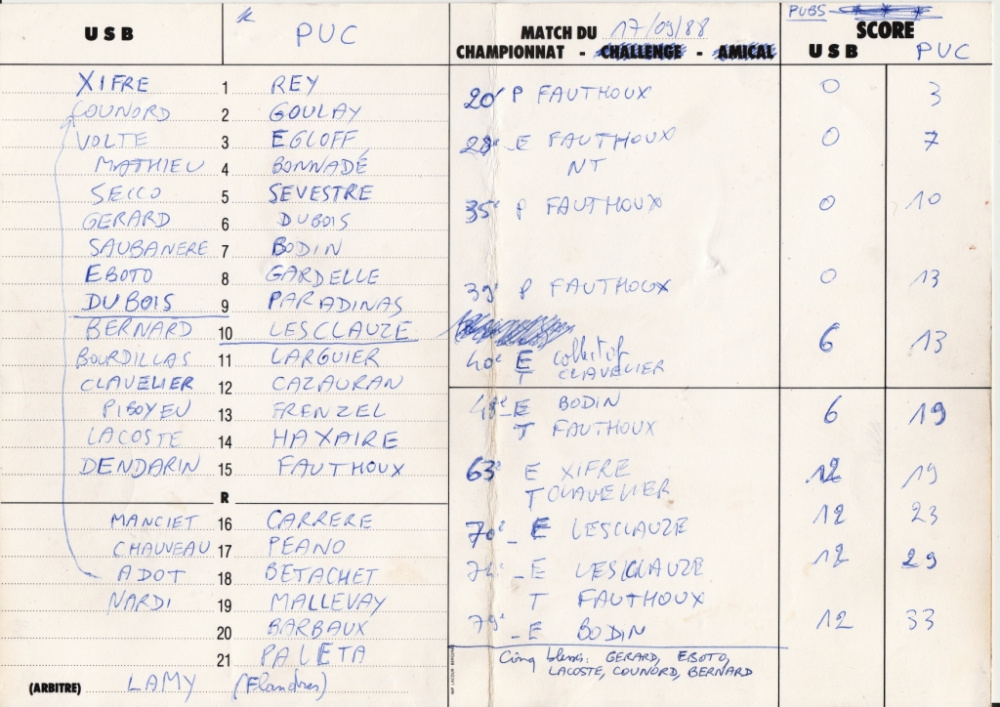 USB PUC MATCH DU 17/09/88 PUBS SCORE
CHAMPIONNAT - CHALLENGE - AMICAL USB PUC
XIFRE 1 REY
COUNORD 2 GOULAY
VOLTE 3 EGLOFF
MATHIEU 4 BONNADÉ
SECCO 5 SEVESTRE
GERARD 6 DUBOIS
SAUBANERE 7 BODIN
EBOTO 8 GARDELLE
DUBOIS 9 PARADINAS
BERNARD 10 LESCLAUZE
BOURDILLAS 11 LARGUIER
CLAVELIER 12 CAZAURAN
PIBOYEU 13 FRENZEL
LACOSTE 14 HAXAIRE
DENDARIN 15 FAUTHOUX
R
MANCIET 16 CARRERE
CHAUVEAU 17 PEANO
ADOT 18 BETACHET
NARDI 19 MALLEVAY
20 BARBAUX
21 PALETA
(ARBITRE) LAMY (Flandres)
20' P FAUTHOUX 0 3
28' E FAUTHOUX 0 7
NT
35' P FAUTHOUX 0 10
39' P FAUTHOUX 0 13
40' E collectif 6 13
T CLAVELIER
E BODIN 6 19
T FAUTHOUX
63' E XIFRE 12 19
T CLAVELIER
70' E LESCLAUZE 12 23
E LESCLAUZE 12 29
T FAUTHOUX
79' E BODIN 12 33
Cinq blessés: GERARD, EBOTO,
LACOSTE, COUNORD, BERNARD